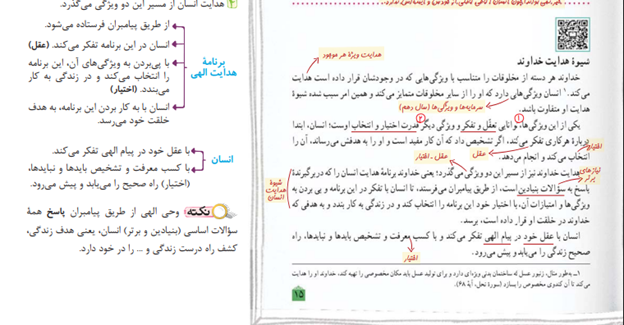 هدایت انسان از مسیر این دو ویژگی می‌گذرد.
از طریق پیامبران فرستاده می‌شود.
انسان در این برنامه تفکر می‌کند. (عقل)
با پی‌بردن به ویژگی‌های آن، این برنامه
را انتخاب می‌کند و در زندگی به کار
می‌بندد. (اختیار)
انسان با به کار بردن این برنامه، به هدف
خلقت خود می‌رسد.
برنامهٔ
هدایت الهی
با عقل خود در پیام الهی تفکر می‌کند.
با کسب معرفت و تشخیص بایدها و نبایدها،
(اختیار) راه صحیح را می‌یابد و پیش می‌رود.
انسان
نکته وحی الهی از طریق پیامبران پاسخ همهٔ
سؤالات اساسی (بنیادین و برتر) انسان، یعنی هدف زندگی،
کشف راه درست زندگی و ... را در خود دارد.
هدایت ویژهٔ هر موجود
شیوهٔ هدایت خداوند
خداوند هر دسته از مخلوقات را متناسب با ویژگی‌هایی که در وجودشان قرار داده است هدایت
می‌کند.۱ انسان ویژگی‌هایی دارد که او را از سایر مخلوقات متمایز می‌کند و همین امر سبب شده شیوهٔ
هدایت او متفاوت باشد.
سرمایه‌ها و ویژگی‌ها (سال دهم)
یکی از این ویژگی‌ها، توانایی تعقّل و تفکر و ویژگی دیگر قدرت اختیار و انتخاب اوست؛ انسان، ابتدا
دربارهٔ هرکاری تفکر می‌کند، اگر تشخیص داد که آن کار مفید است و او را به هدفش می‌رساند، آن را
انتخاب می‌کند و انجام می‌دهد.
عقل
اختیار
عقل ـ اختیار
هدایت خداوند نیز از مسیر این دو ویژگی می‌گذرد؛ یعنی خداوند برنامهٔ هدایت انسان را که در برگیرندهٔ
پاسخ به سؤالات بنیادین است، از طریق پیامبران می‌فرستد، تا انسان با تفکر در این برنامه و پی بردن به
ویژگی‌ها و امتیازات آن، با اختیار خود این برنامه را انتخاب کند و در زندگی به کار بندد و به هدفی که
خداوند در خلقت او قرار داده است، برسد.
نیازهای
برتر
شیوهٔ
هدایت
انسان
انسان با عقل خود در پیام الهی تفکر می‌کند و با کسب معرفت و تشخیص بایدها و نبایدها، راه
صحیح زندگی را می‌یابد و پیش می‌رود.
اختیار
۱ـ به‌طور مثال، زنبور عسل که ساختمان بدنی ویژه‌ای دارد و برای تولید عسل باید مکان مخصوصی را تهیه کند، خداوند او را هدایت
می‌کند تا آن کندوی مخصوص را بسازد (سورهٔ نحل، آیهٔ ۶۸).
۱۵